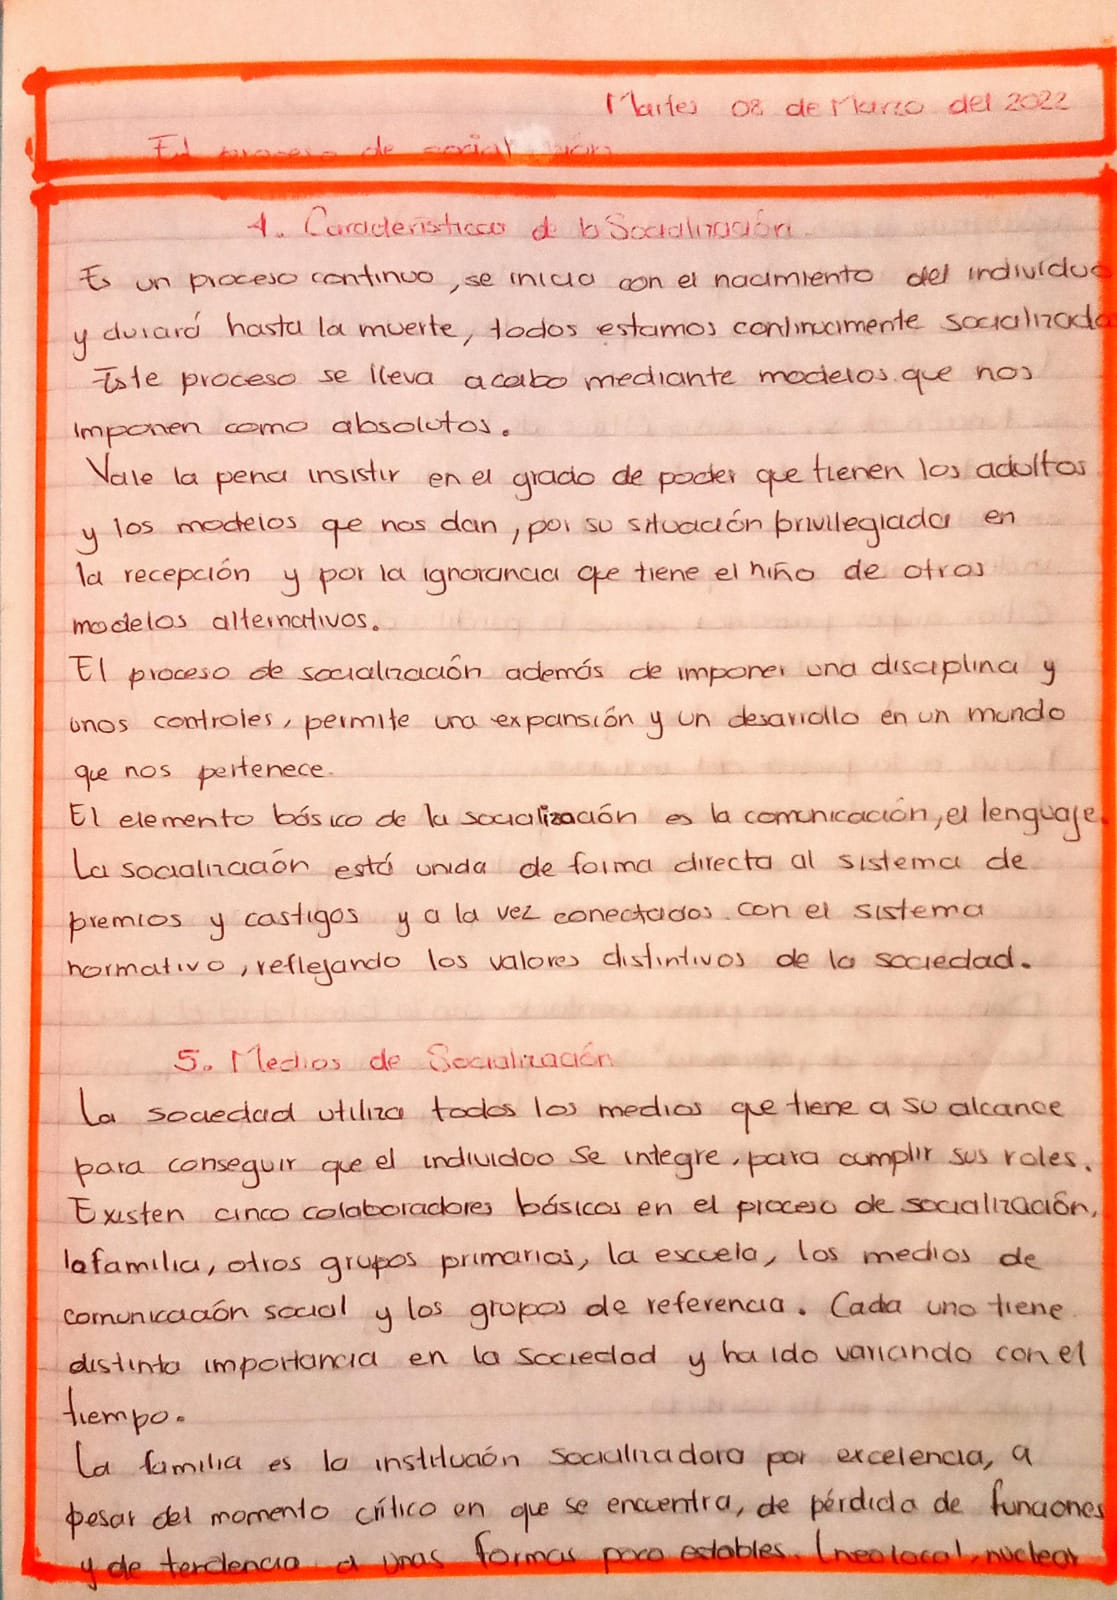 Martes 08 de Marzo del 2022
El proceso de social
4. Características de la Socialización.
Es un proceso continuo, se inicia con el nacimiento del individuo
y durará hasta la muerte, todos estamos continuamente socializado
Este proceso se lleva acabo mediante modelos que nos
imponen como absolutos.
Vale la pena insistir en el grado de poder que tienen los adultos
y los modelos que nos dan, por su situación privilegiada en
la recepción y por la ignorancia que tiene el niño de otros
modelos alternativos.
El proceso de socialización además de imponer una disciplina y
unos controles, permite una expansión y un desarrollo en un mundo
que nos pertenece.
El elemento básico de la socialización es la comunicación, el lenguaje.
La socialización está unida de forma directa al sistema de
premios y castigos y a la vez conectados con el sistema
normativo, reflejando los valores distintivos de la sociedad.
5. Medios de Socialización
La sociedad utiliza todos los medios que tiene a su alcance
para conseguir que el individuo se integre, para cumplir sus roles.
Existen cinco colaboradores básicos en el proceso de socialización,
la familia, otros grupos primarios, la escuela, los medios de
comunicación social y los grupos de referencia. Cada uno tiene
distinta importancia en la sociedad y ha ido variando con el
tiempo.
La familia es la institución socializadora por excelencia, a
pesar del momento crítico en que se encuentra, de pérdida de funciones
y de tendencia a unas formas poco estables. (neolocal, nuclear